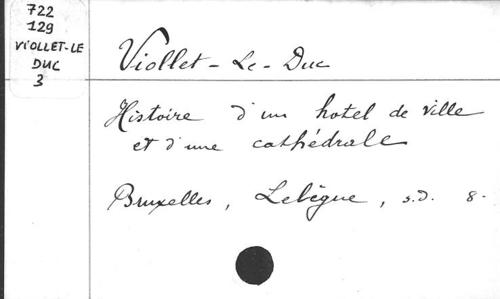 722
129
VIOLLET-LE
DUC
3
Viollet-Le-Duc
Histoire d'un hotel de ville
et d'une cathédrale
Bruxelles, Lebègue, s.d. 8.